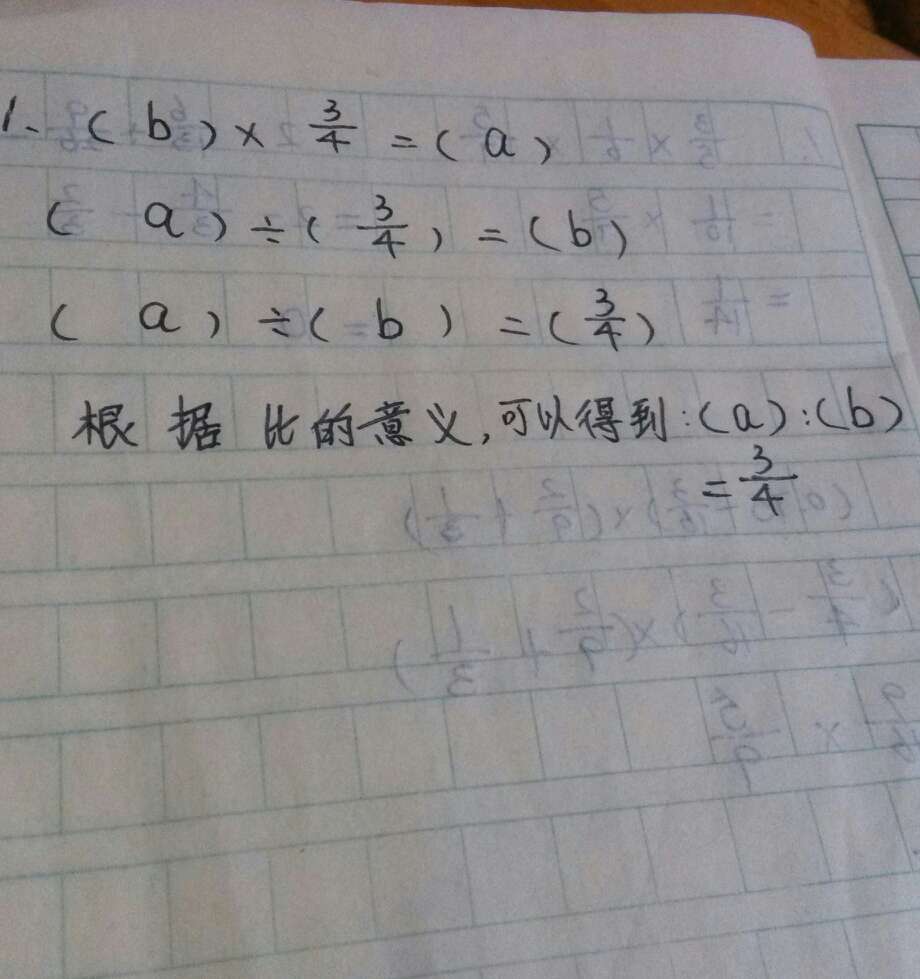 1. (b)×3/4=(a)
(a)÷(3/4)=(b)
(a)÷(b)=(3/4)
根据比的意义,可以得到:(a):(b)
=3/4